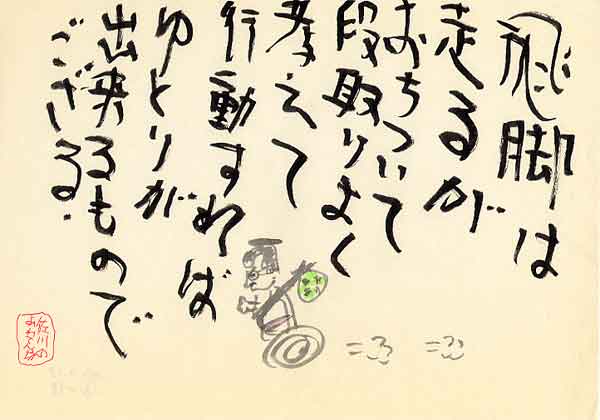 飛脚は
走るが
おちついて
段取りよく
考えて
行動すれば
ゆとりが
出来るもので
ござる.
佐川の